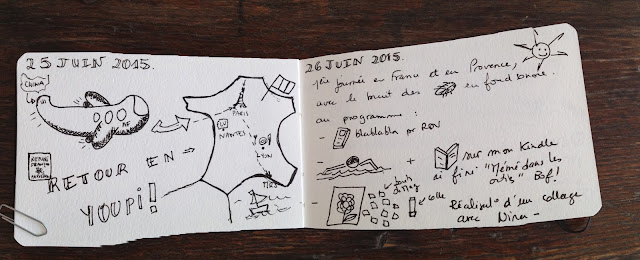 25 JUIN 2015.
CHINA
AF
RETOUR EN
YOUPI!
PARIS
NANTES
LYON
MRS
26 JUIN 2015.
1ère journée en France et en Provence,
avec le bruit des
en fond sonore.
au programme :
- blablabla por RDV
-
+ sur mon Kindle
ai fini "Mémé dans les
orties" Bof!
-
colle
Réalisat° d'un collage
avec Ninon -